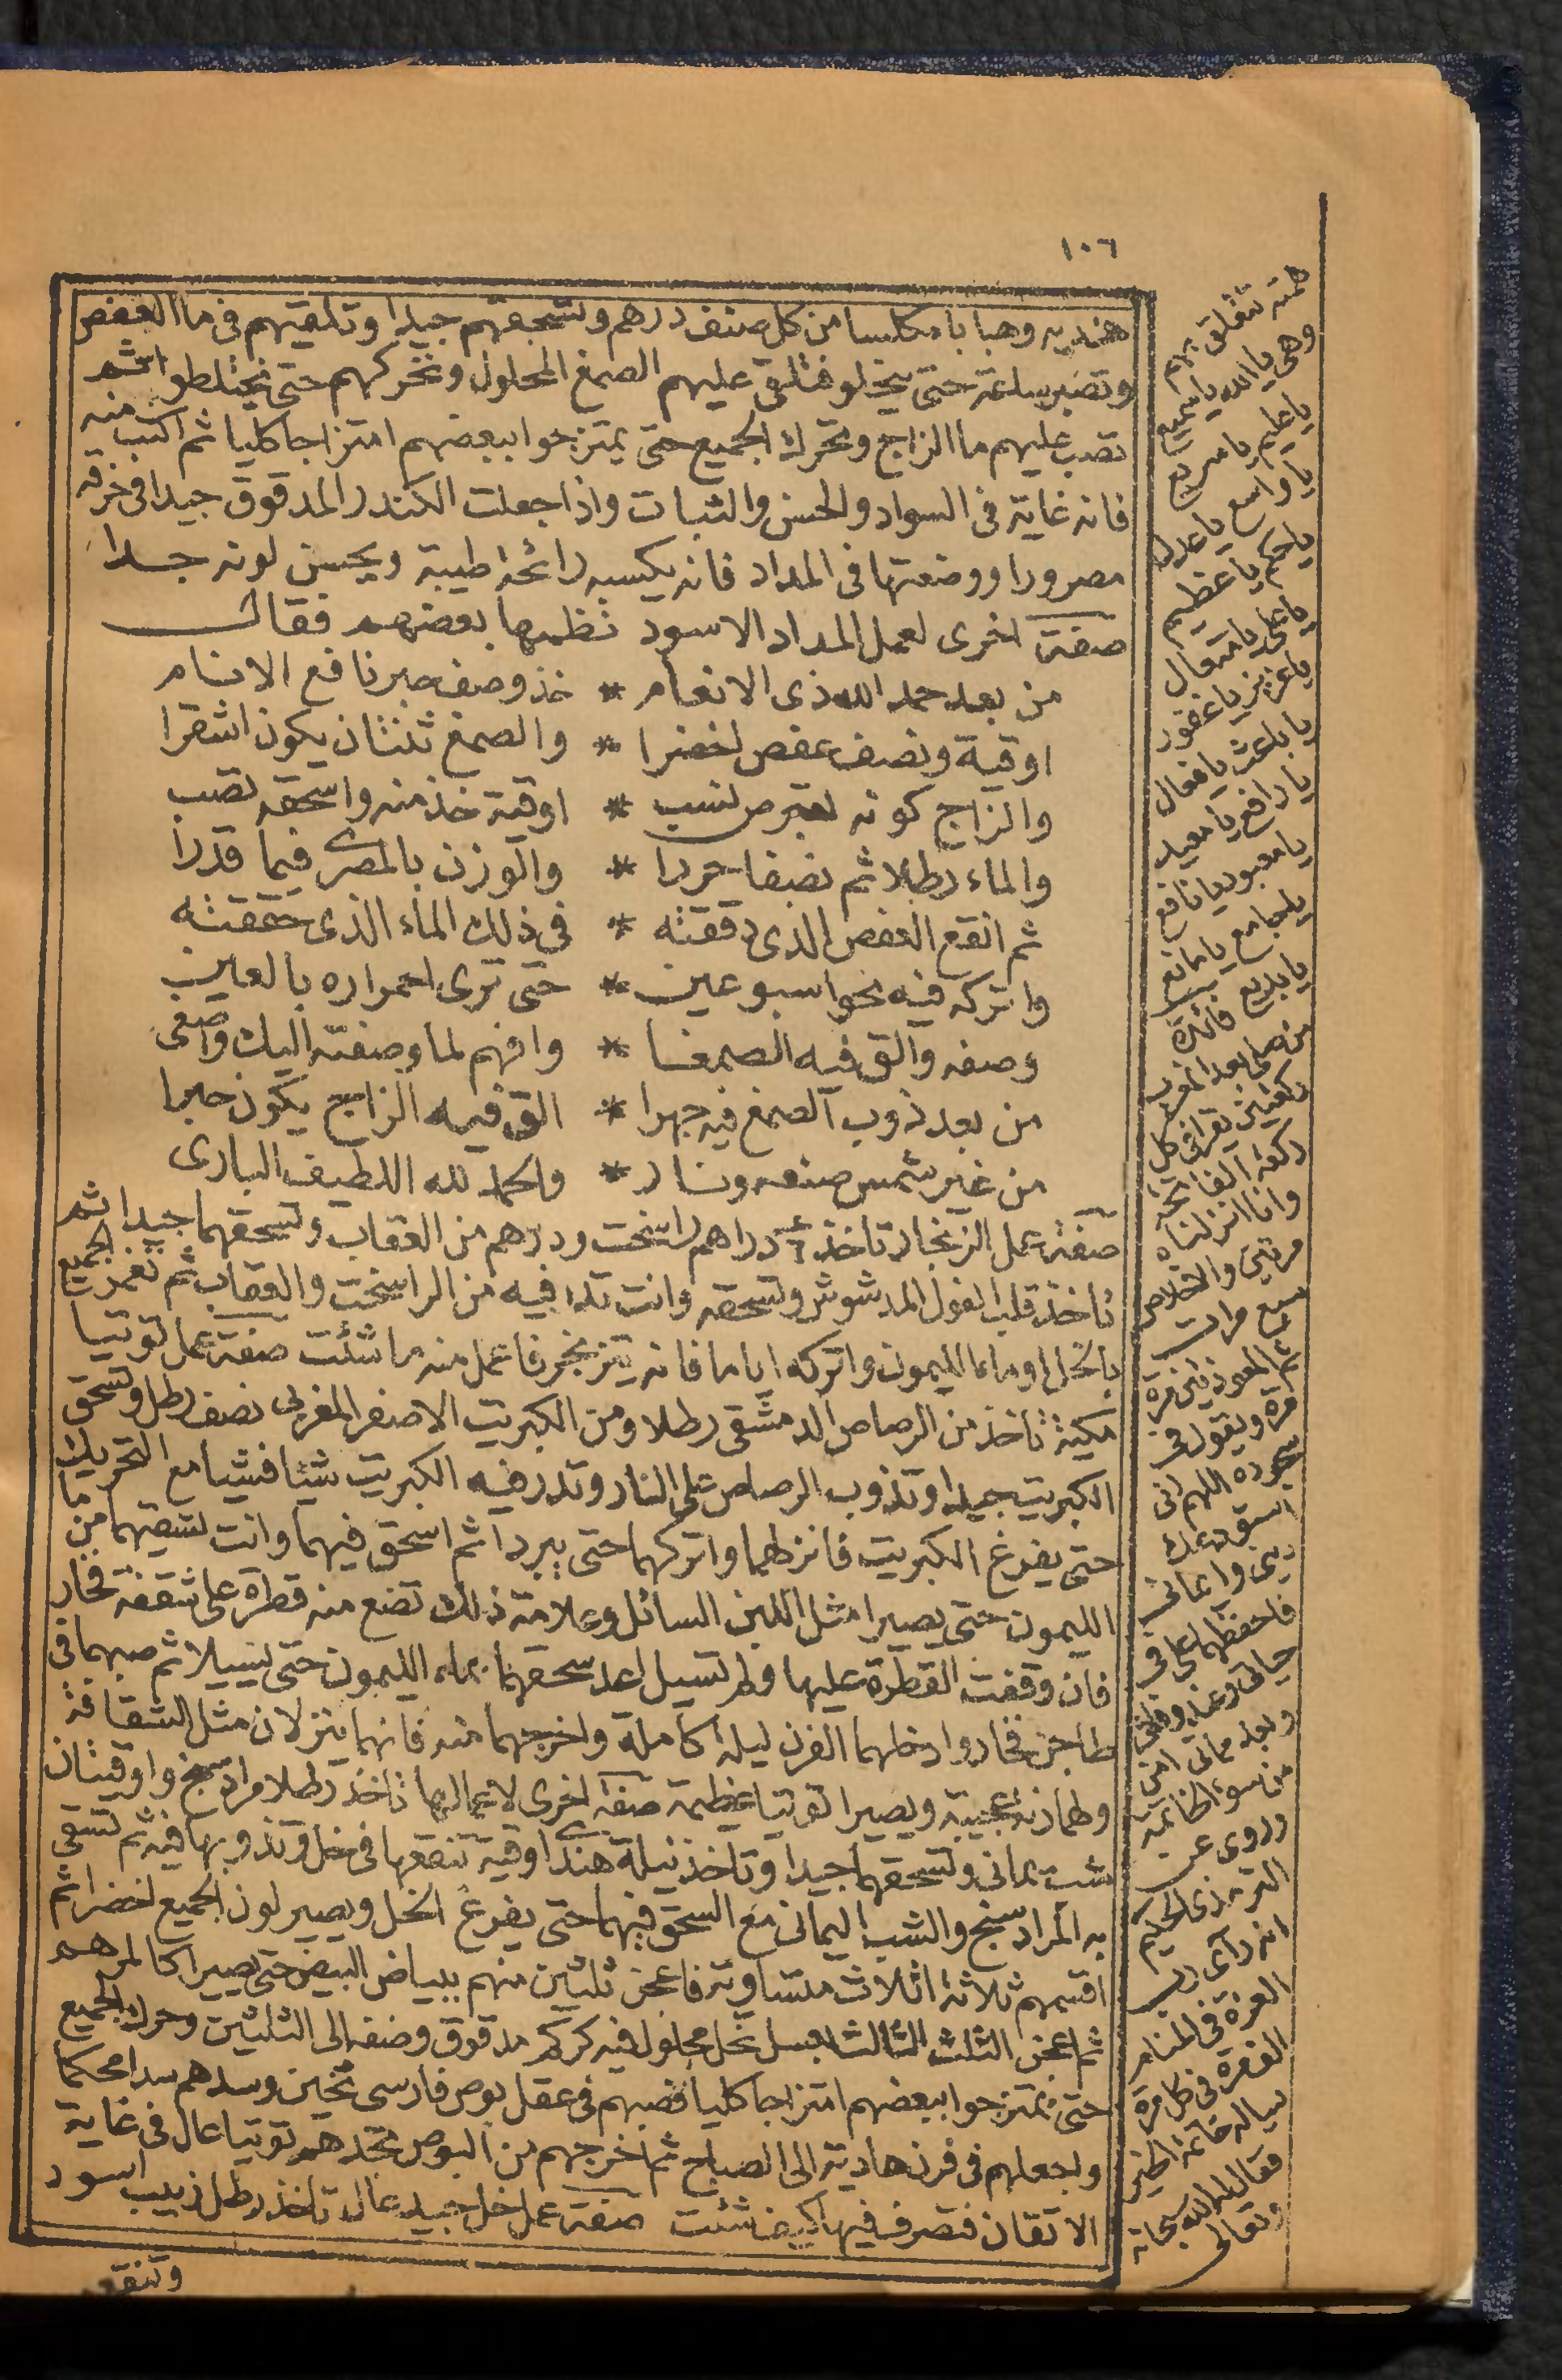 ١٠٦
هنديه وهبابا مكلسا من كل صنف درهم وتسحقهم جيدا وتلقيهم فى ما العفص
وتصبر ساعة حتى ينحلو فتلق عليهم الصمغ المحلول وتحركهم حتى يختلطو ثم
تصب عليهم ما الزاج وتحرك الجميع حتى يمتزجوا ببعضهم امتزاجا كليا ثم اكتب منه
فانه غاية فى السواد والحسن والثبات واذا جعلت الكندر المدقوق جيدا فى خرقه
مصرورا ووضعتها فى المداد فانه يكسبه رائحة طيبة ويحسن لونه جدا
صفة اخرى لعمل المداد الاسود نظمها بعضهم فقال
من بعد حمد الله ذى الانعام * خذ وصف حبر نافع الانام
اوقية ونصف عفص اخضرا * والصمغ ثنتان يكون اشقرا
والزاج كونه لقبرص نسب * اوقية خذ منه واسحقه تصب
والماء رطلا ثم نصفا حررا * والوزن بالمصرى فيما قدرا
ثم انقع العفص الذى دققته * فى ذلك الماء الذى حققته
واتركه فيه نحو اسبوعين * حتى ترى احمراره بالعين
وصفه والق فيه الصمغا * وافهم لما وصفته اليك واصغى
من بعد ذوب الصمغ فيه جهرا * الق فيه الزاج يكون حبرا
من غير شمس صنعه ونار * والحمد لله اللطيف البارى
صفة عمل الزنجار تاخذ دراهم راسخت ودرهم من العقاب وتسحقهما جيدا ثم
تاخذ قلب الفول المدشوش وتسحقه وانت تذر فيه من الراسخت والعقاب ثم تغمر الجميع
بالخل او بماء الليمون واتركه اياما فانه يتزنجر فاعمل منه ما شئت صفة عمل توتيا
مكية تاخذ من الرصاص الدمشقى رطلا ومن الكبريت الاصفر المغربى نصف رطل وتسحق
الكبريت جيدا وتذوب الرصاص على النار وتذر فيه الكبريت شيئا فشيا مع التحريك
حتى يفرغ الكبريت فانزلهما واتركهما حتى يبردا ثم اسحق فيهما وانت تسقيهما من ما
الليمون حتى يصيرا مثل اللبن السائل وعلامة ذلك تضع منه قطرة على شقفة فخار
فان وقفت القطرة عليها ولم تسيل اعد سحقهما بماء الليمون حتى يسيلا ثم صبهما فى
طاجن فخار وادخلهما الفرن ليلة كاملة واخرجهما منه فانهما ينزلان مثل الشقافة
ولهما زنة عجيبة ويصيرا توتيا عظيمة صفة اخرى لاعمالها تاخذ رطلا مرادسنج واوقيتان
شب يمانى وتسحقهما جيدا وتاخذ نيلة هندى اوقية تنقعها فى خل وتذوبها فيه ثم تسقى
به المرادسنج والشب اليمانى مع السحق فيهما حتى يفرغ الخل ويصير لون الجميع اخضرا ثم
اقسمهم ثلاثة اثلاث متساوية فاعجن ثلثين منهم ببياض البيض حتى يصيرا كالمرهم
ثم اعجن الثلث الثالث بعسل نحل محلول فيه كركم مدقوق وضفه الى الثلثين وحرك الجميع
حتى يمتزجوا ببعضهم امتزاجا كليا فصبهم فى عقل بوص فارسى ثخين وسدهم سدا محكما
واجعلهم فى فرن هادية الى الصباح ثم اخرجهم من البوص تجدهم توتيا عال فى غاية
الاتقان فتصرف فيها كيف شئت صفة عمل خل جيد عال تاخذ رطل زبيب اسود
وتنقعه
همته تتعلق بهم
وهى يا الله يا سميع
يا عليم يا سريع
يا واسع يا عدل
يا حكم يا عظيم
يا على يا متعال
يا عزيز يا غفور
يا باعث يا فعال
يا رافع يا معيد
يا معبود يا نافع
يا جامع يا مانع
يا بديع فائدة
من صلى بعد المغرب
ركعتين يقرا فى كل
ركعة الفاتحة
وانا انزلناه
مرتين والاخلاص
سبع مرات
ثم المعوذتين مرة
مرة ويقول فى
سجوده اللهم انى
استودعك
دينى وايمانى
فاحفظهما على فى
حياتى وعند وفاتى
وبعد مماتى امن
من سوء الخاتمة
وروى عن
الترمذى الحكيم
انه رآى رب
العزة فى المنام
الف مرة فى كل مرة
يساله خاتمة الخير
فقال له الله سبحانه
وتعالى